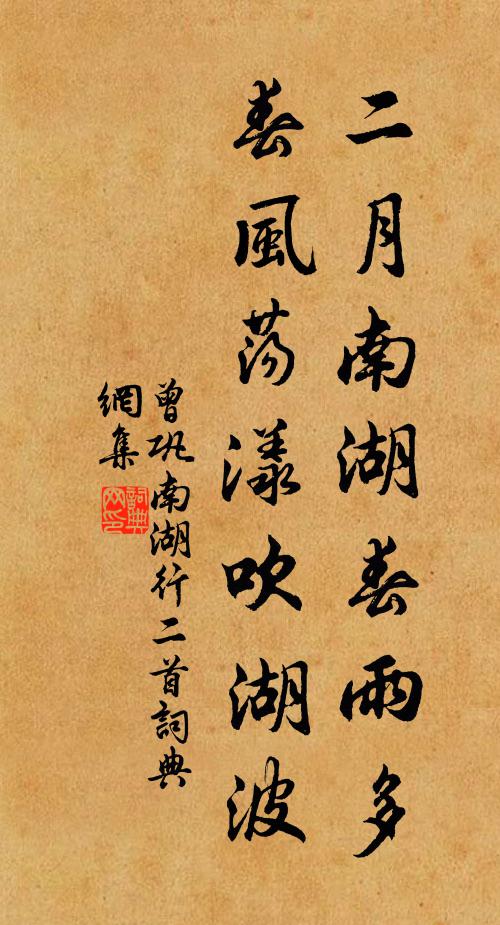 二月南湖春雨多
春風蕩漾吹湖波
曾巩南湖行二首詞典
網集
詞典
网印